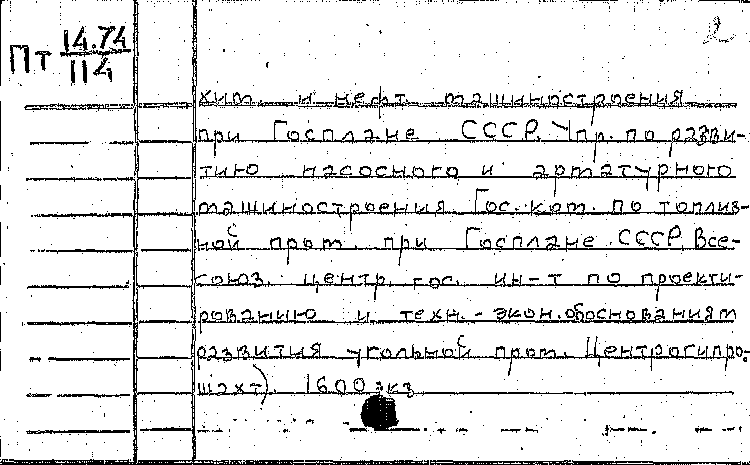 2
Пт 14.74
114
хим. и нефт. машиностроения
при Госплане СССР. Упр. по разви-
тию насосного и арматурного
машиностроения. Гос. ком. по топлив-
ной пром. при Госплане СССР. Все-
союз. центр. гос. ин-т по проекти-
рованию и техн.-экон. обоснованиям
развития угольной пром. Центрогипро-
шахт). 1600 экз.